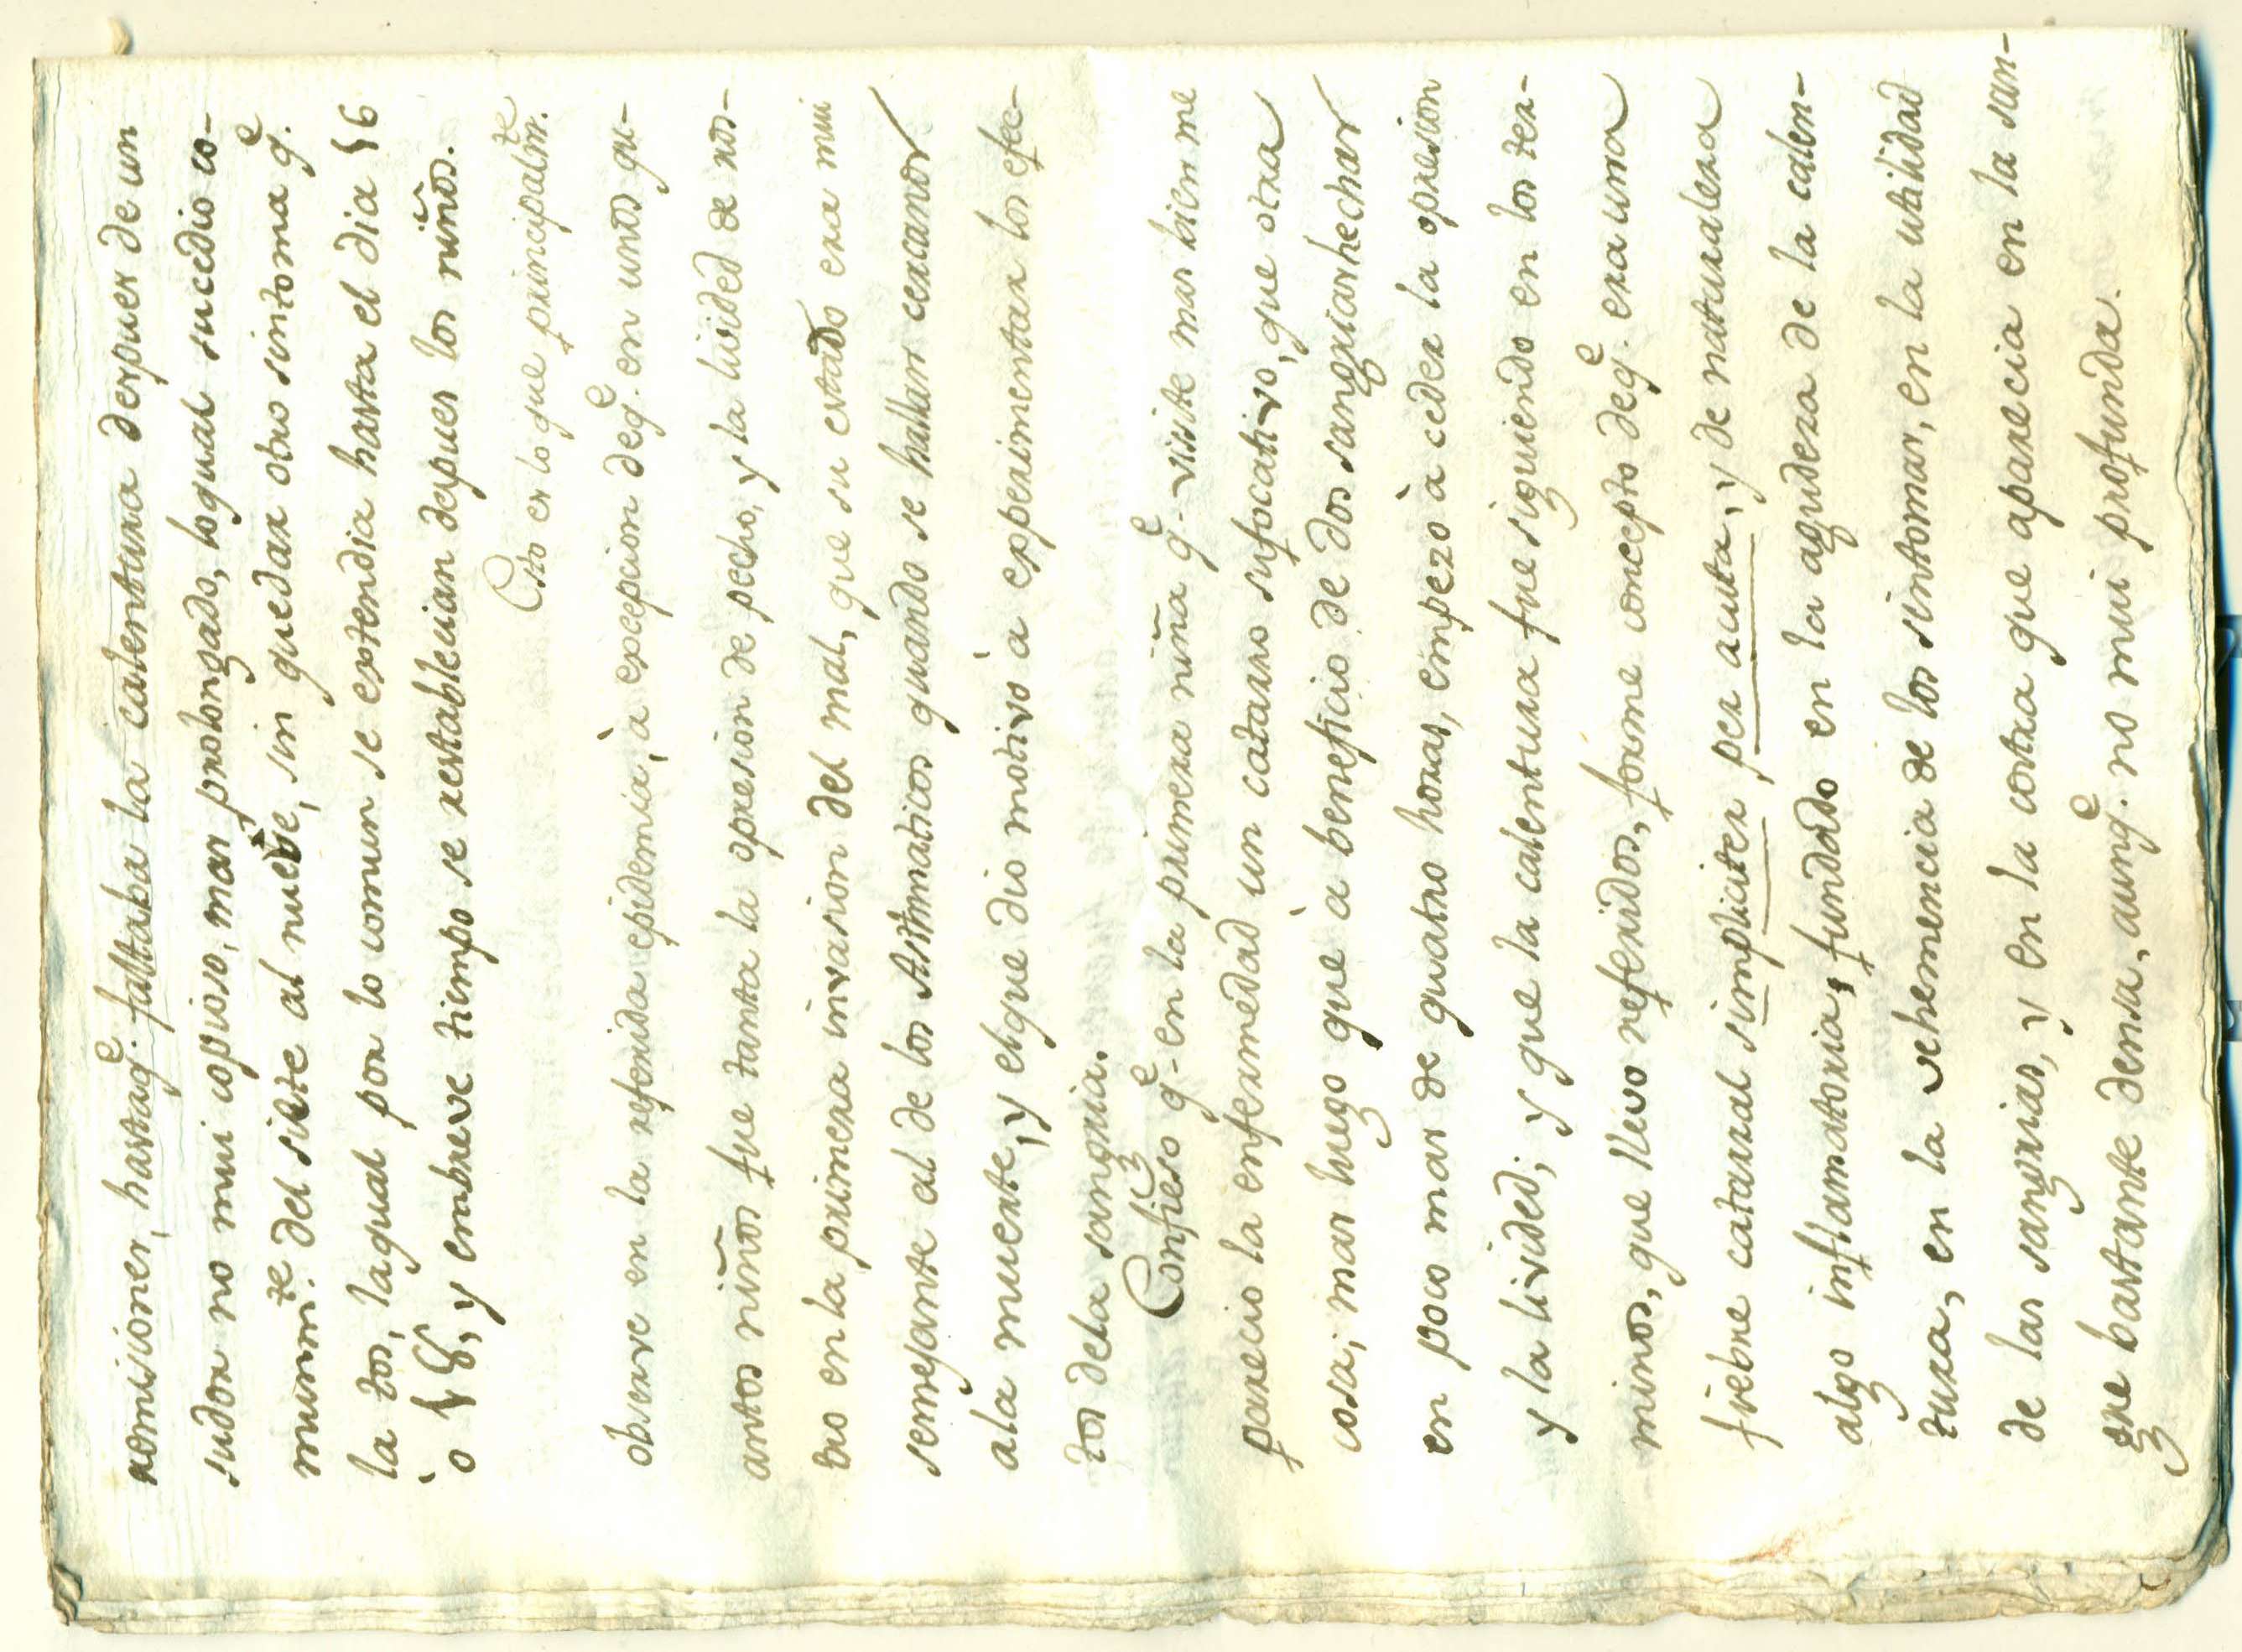 remisiones, hastaq.e faltaba la calentura despues de un
sudor no mui copioso, mas prolongado, loqual sucedio co-
munm.te del siete al nueve, sin quedar otro sintoma q.e
la tos, laqual por lo comun se extendia hasta el dia 16
ò 18, y embreve tiempo se restablecian depues los niños.
Esto es lo que principalm.te
observe en la referida epidemia, à excepcion deq.e en unos qu-
antos niños fue tanta la opresion de pecho, y la livided de ros-
tro en la primera invasion del mal, que su estado era mui
semejante al de los Asthmaticos quando se hallan cercanos
ala muerte, y elque dio motivo à experimentar los efec-
tos dela sangria.
Confieso q.e en la primera niña q.e visite mas bien me
parecio la enfermedad un catarro sufocativo, que otra
cosa; mas luego que à beneficio de dos sangriashechas
en poco mas de quatro horas, empezò à ceder la opresion
y la livided; y que la calentura fue siguiendo en los ter-
minos, que llevo referidos, forme concepto deq.e era una
fiebre catarral simpliciter per acuta, y de naturaleza
algo inflamatoria, fundado en la agudeza de la calen-
tura, en la vehemencia de los sintomas, en la utilidad
de las sangrias, y en la costra que aparecia en la san-
gre bastante densa, aunq.e no mui profunda.